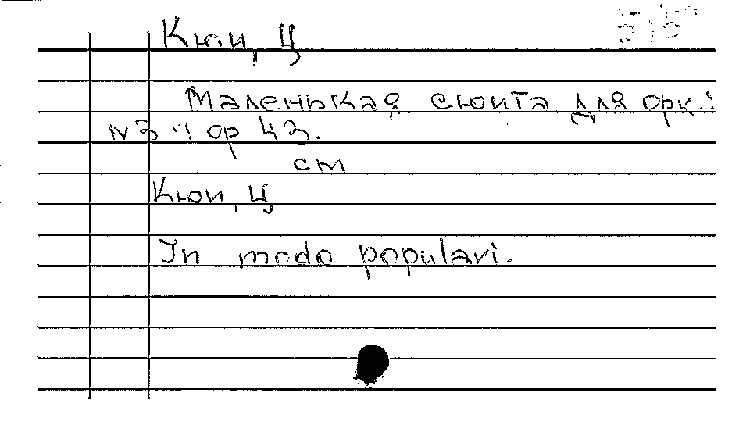 Кюи, Ц
Маленькая сюита для орк.:
N3 : ор 43.
см
Кюи, Ц
In modo populari.